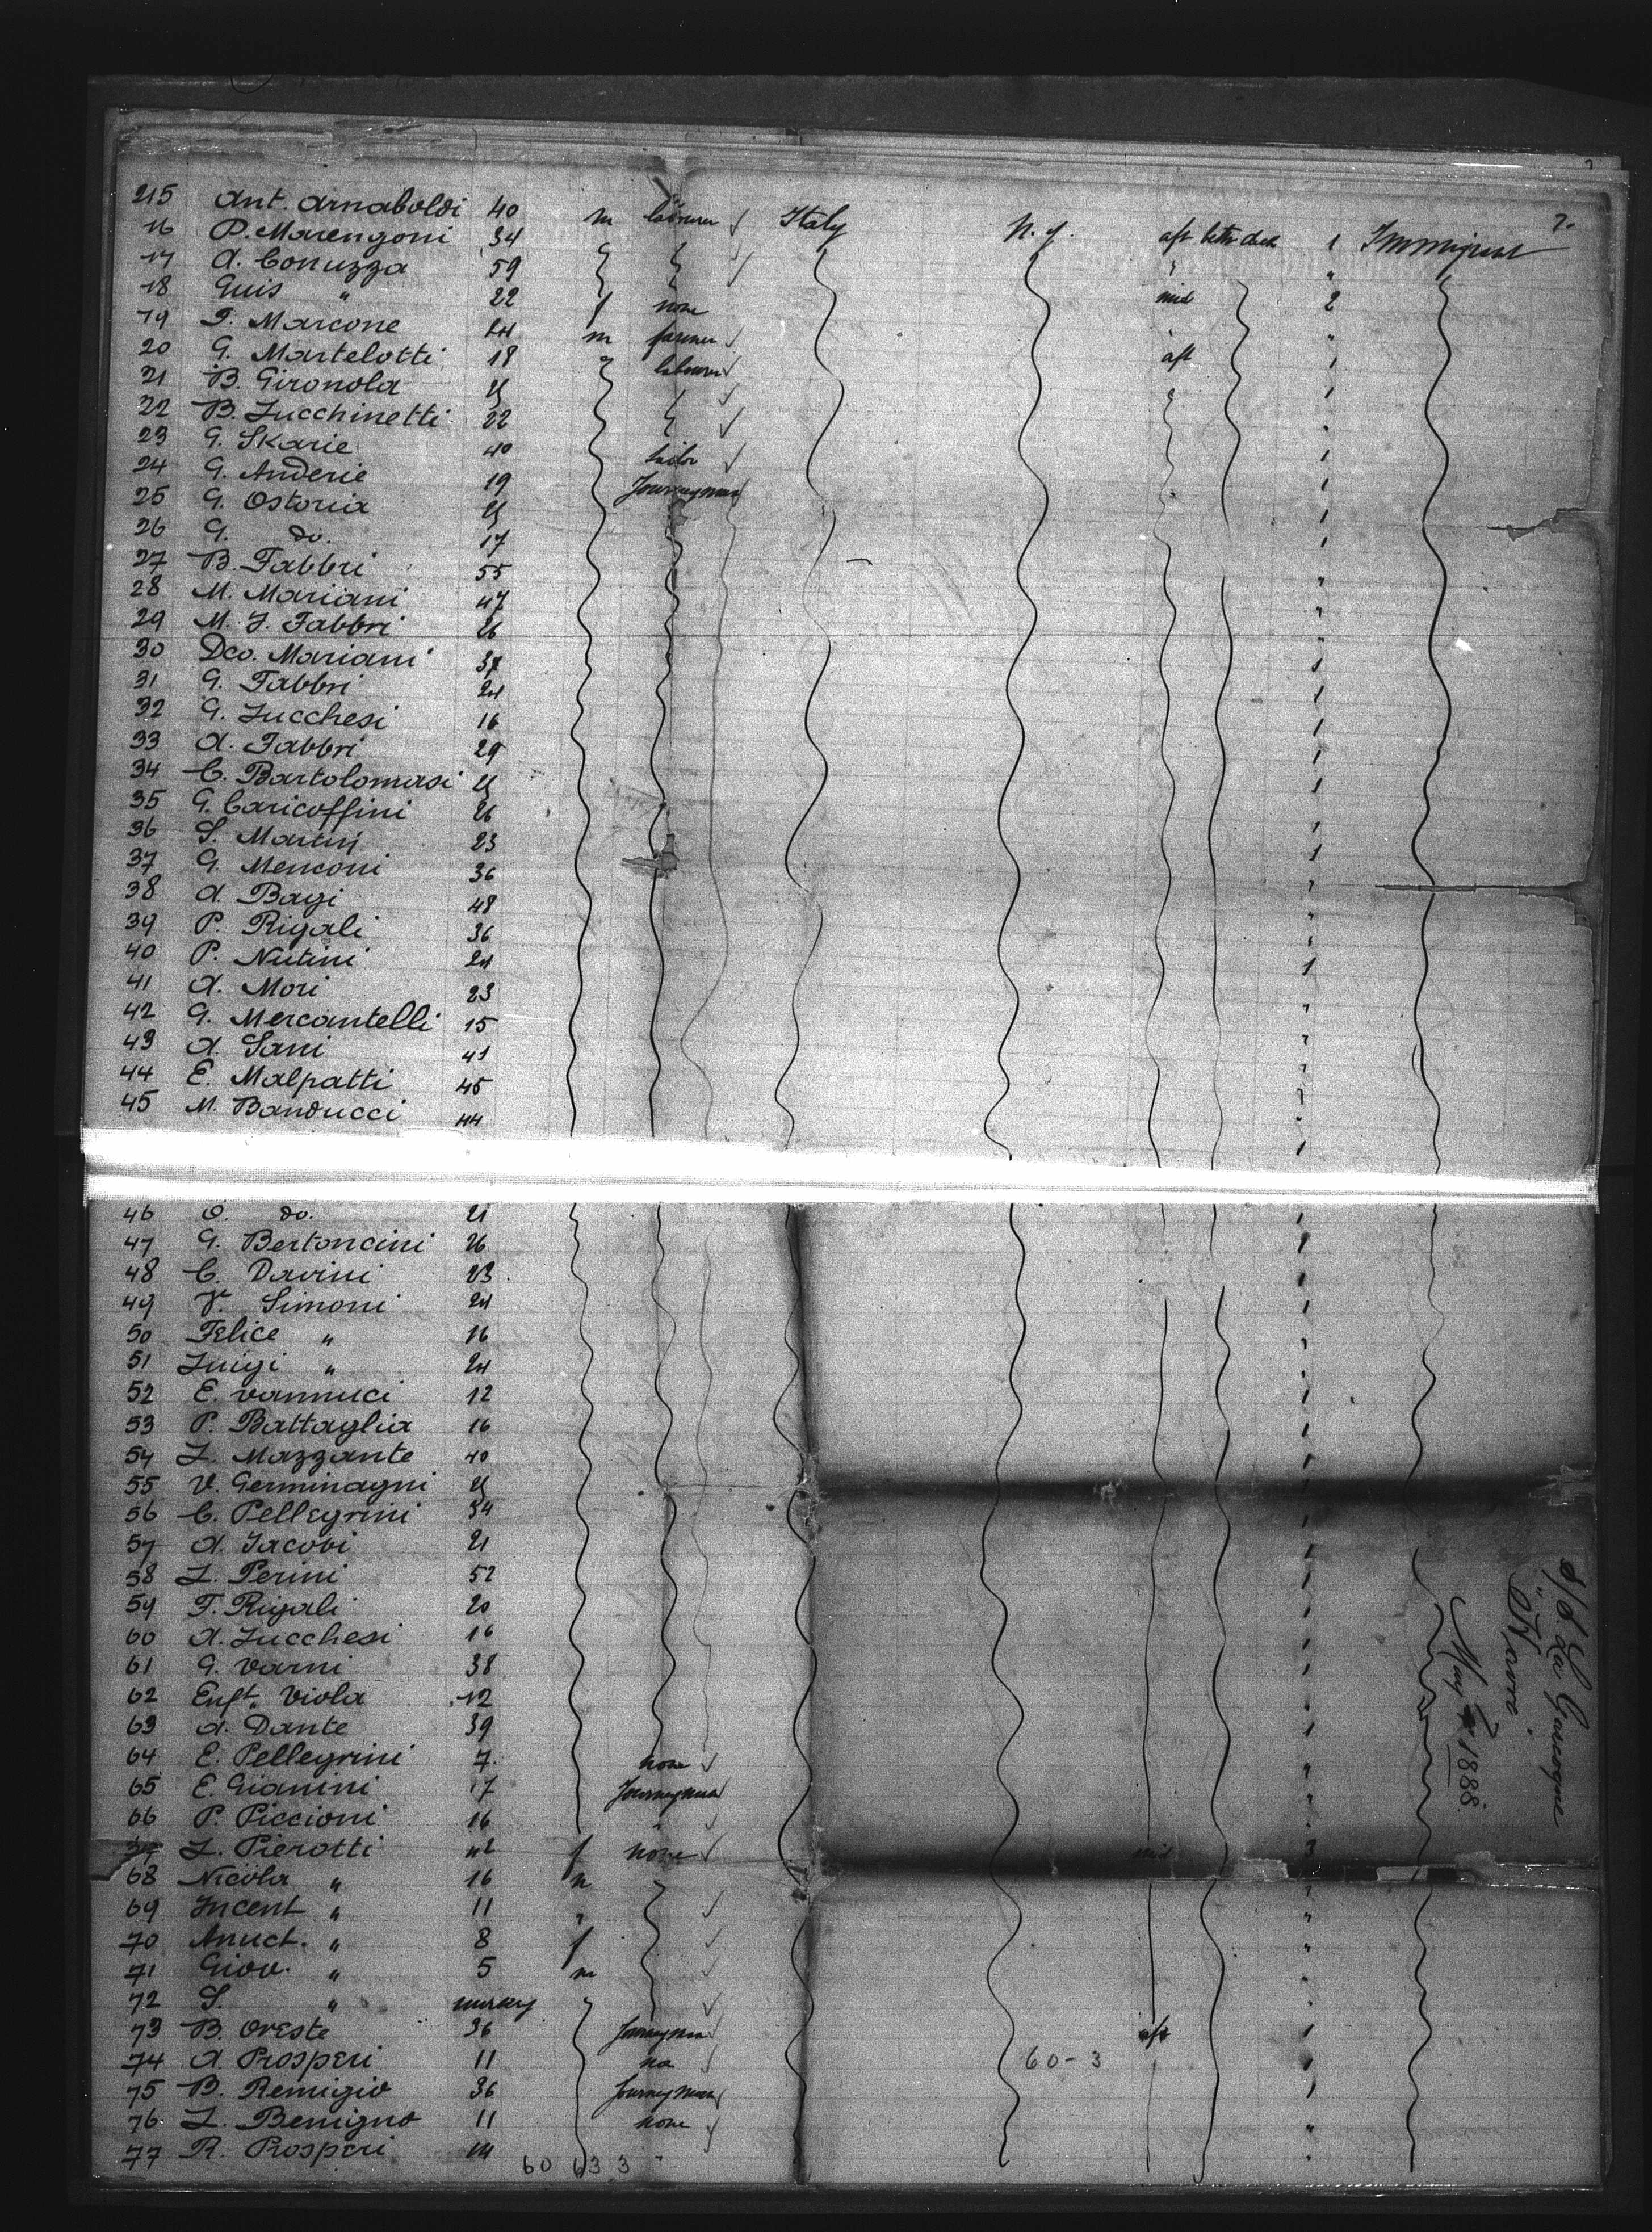 7.
215 Ant. Arnaboldi 40 m labourer Italy N.Y. aft betw deck 1 Immigrant
16 P. Marengoni 34 "
17 A. Conuzza 59
18 Guis " 22 f none mid 2
19 F. Marcone 24 m farmer "
20 G. Martelotti 18 labourer aft 1
21 B. Gironola 1
22 B. Lucchinetti 22
23 G. Skarie 40 1
24 G. Anderie 19 Journeyman 1
25 G. Ostoria 1
26 G. do. 17 1
27 B. Fabbri 55 "
28 M. Mariani 47 "
29 M. J. Fabbri 26 "
30 Dco. Mariani 1
31 G. Fabbri 24 1
32 G. Lucchesi 16 1
33 A. Fabbri 29 1
34 C. Bartolomasi 1
35 G. Caricoffini 26 1
36 S. Martinj 23 1
37 G. Menconi 36 "
38 A. Bagi 48 "
39 P. Rigali 36 "
40 P. Nutini 24 1
41 A. Mori 23
42 G. Mercantelli 15 "
43 A. Sani 41 "
44 E. Malpatti 45 "
45 M. Banducci 44 1
46 O. do. 21 1
47 G. Bertoncini 26 1
48 C. Davini 23 1
49 V. Simoni 24 1
50 Felice " 16 1
51 Luigi " 24 1
52 E. vannuci 12 1
53 P. Battaglia 16 1
54 L. Mazzante 40 1
55 V. Germinagni 1
56 C. Pellegrini 34 1
57 A. Jacobi 21 1
58 L. Perini 52 1
59 F. Rigali 20 1
60 A. Lucchesi 16 1
61 G. Varni 38 1
62 Enft. Viola 12 1
63 A. Dante 39 1
64 E. Pellegrini 7 none "
65 E. Gianini 17 Journeyman "
66 P. Piccioni 16 "
L. Pierotti 42 f none mid 3
68 Nicola " 16 m "
69 Incent " 11 " "
70 Anuct. " 8 f "
71 Giov. " 5 m "
72 S. "
73 B. Oreste 36 Journeyman aft 1
74 A. Prosperi 11 no 60-3 1
75 B. Remigio 36 Journeyman 1
76 L. Benigno 11 none "
77 R. Prosperi "
60 63 3
S/S La Gascogne
" Havre
May 7 1888